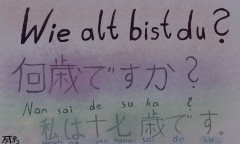 Wie alt bist du?
何歳ですか?
Nan sai de su ka ?
私は十七歳です。
sai de su